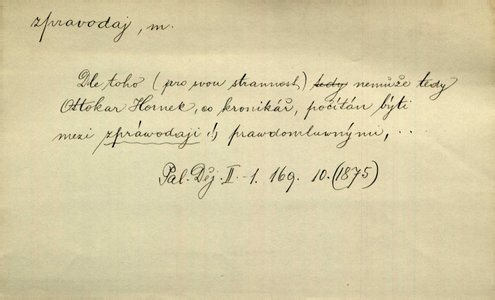 zpravodaj, m.
Dle toho (pro svou strannost) tedy nemůže tedy
Ottokar Hornek, co kronikář, počítán býti
mezi zpráwodaji prawdomluwnými, ..
Pal. Děj. II.-1. 169. 10. (1875)